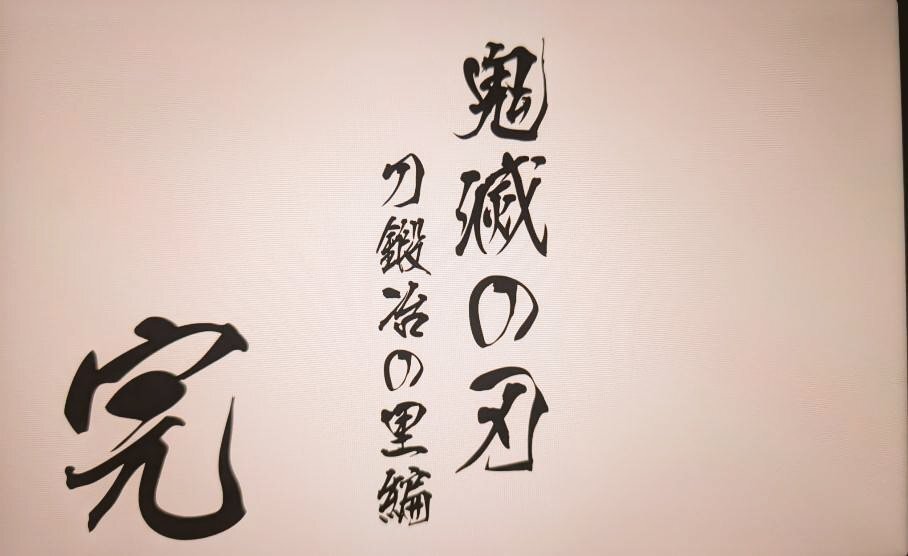 鬼滅の刃
刀鍛冶の里編
完